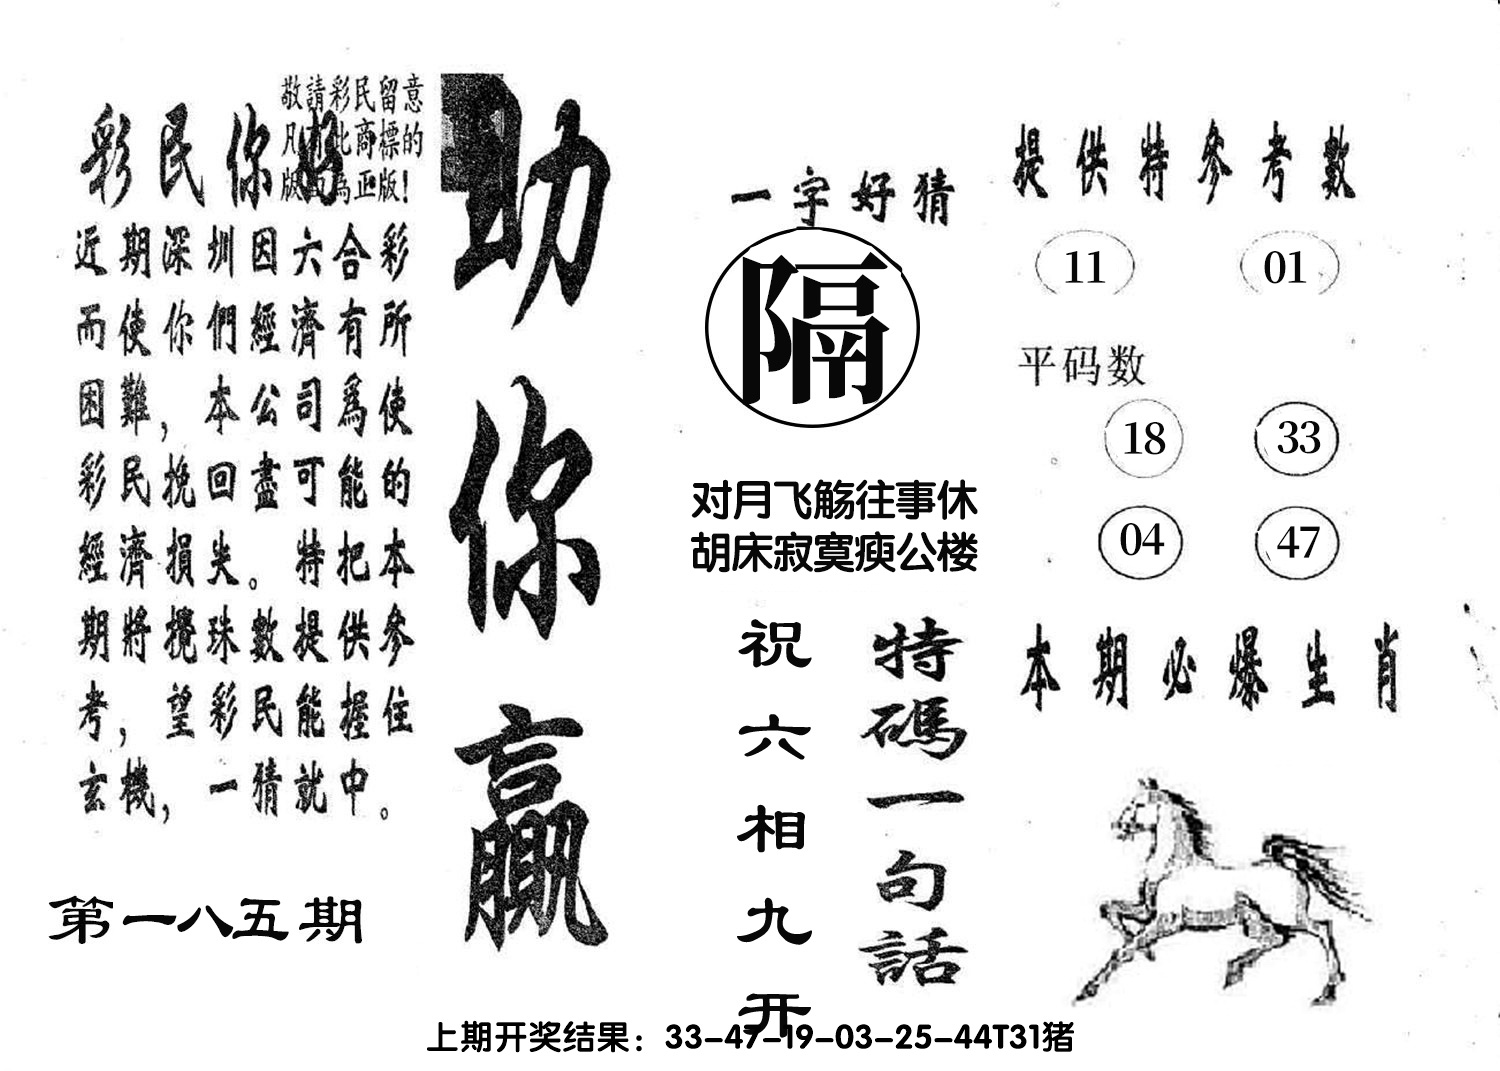 敬請彩民留意
凡有此商標的
版面為正版！
彩民你好
近期深圳因六合彩
而使你們經濟有所
困難，本公司爲使
彩民挽回盡可能的
經濟損失。特把本
期將攪珠數提供參
考，望彩民能握住
玄機，一猜就中。
第一八五期
助你赢
一字好猜
隔
对月飞觞往事休
胡床寂寞瘐公楼
特碼一句話
祝六相九开
提供特參考數
11 01
平码数
18 33
04 47
本期必爆生肖
上期开奖结果：33-47-19-03-25-44T31猪